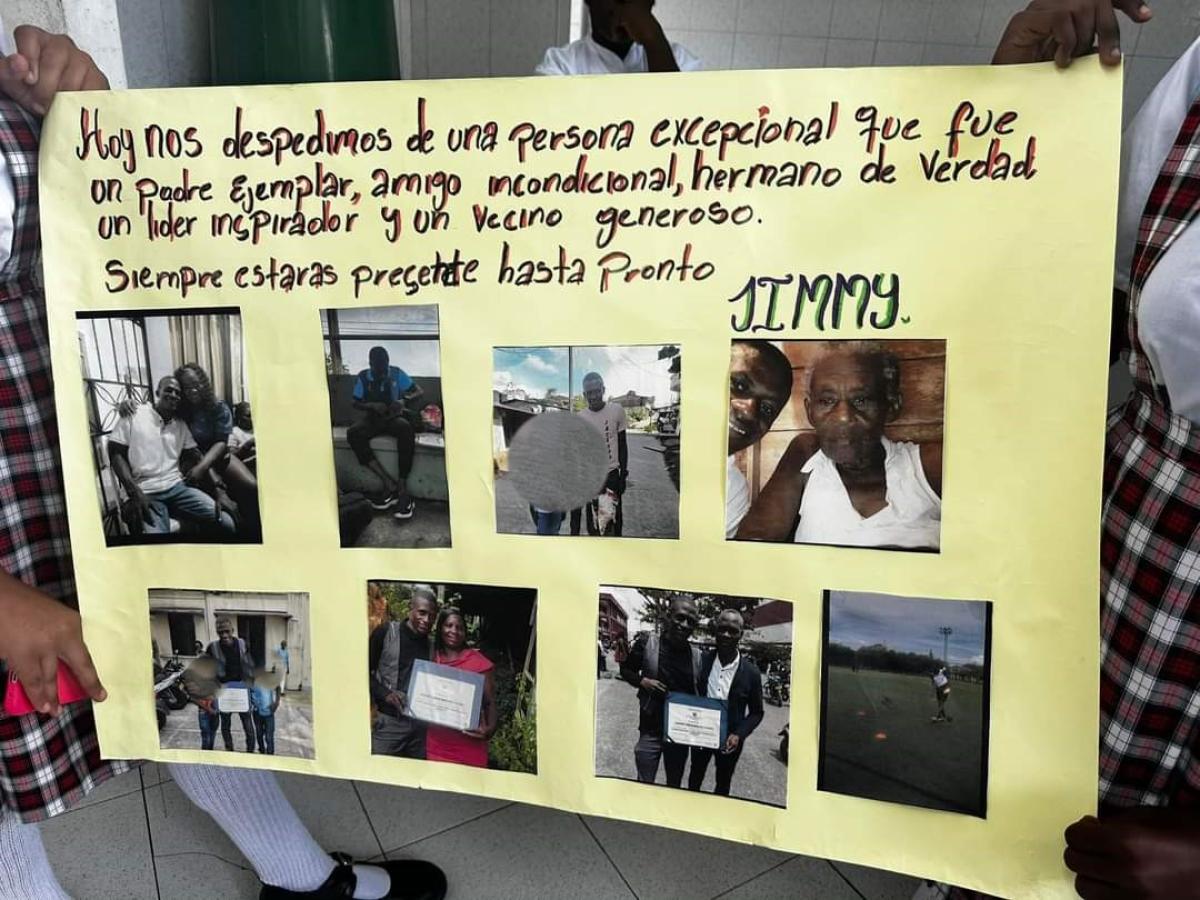 Hoy nos despedimos de una persona excepcional que fue
un Padre Ejemplar, amigo incondicional, hermano de Verdad
un lider inspirador y un Vecino generoso.
Siempre estaras presente hasta Pronto
JIMMY.